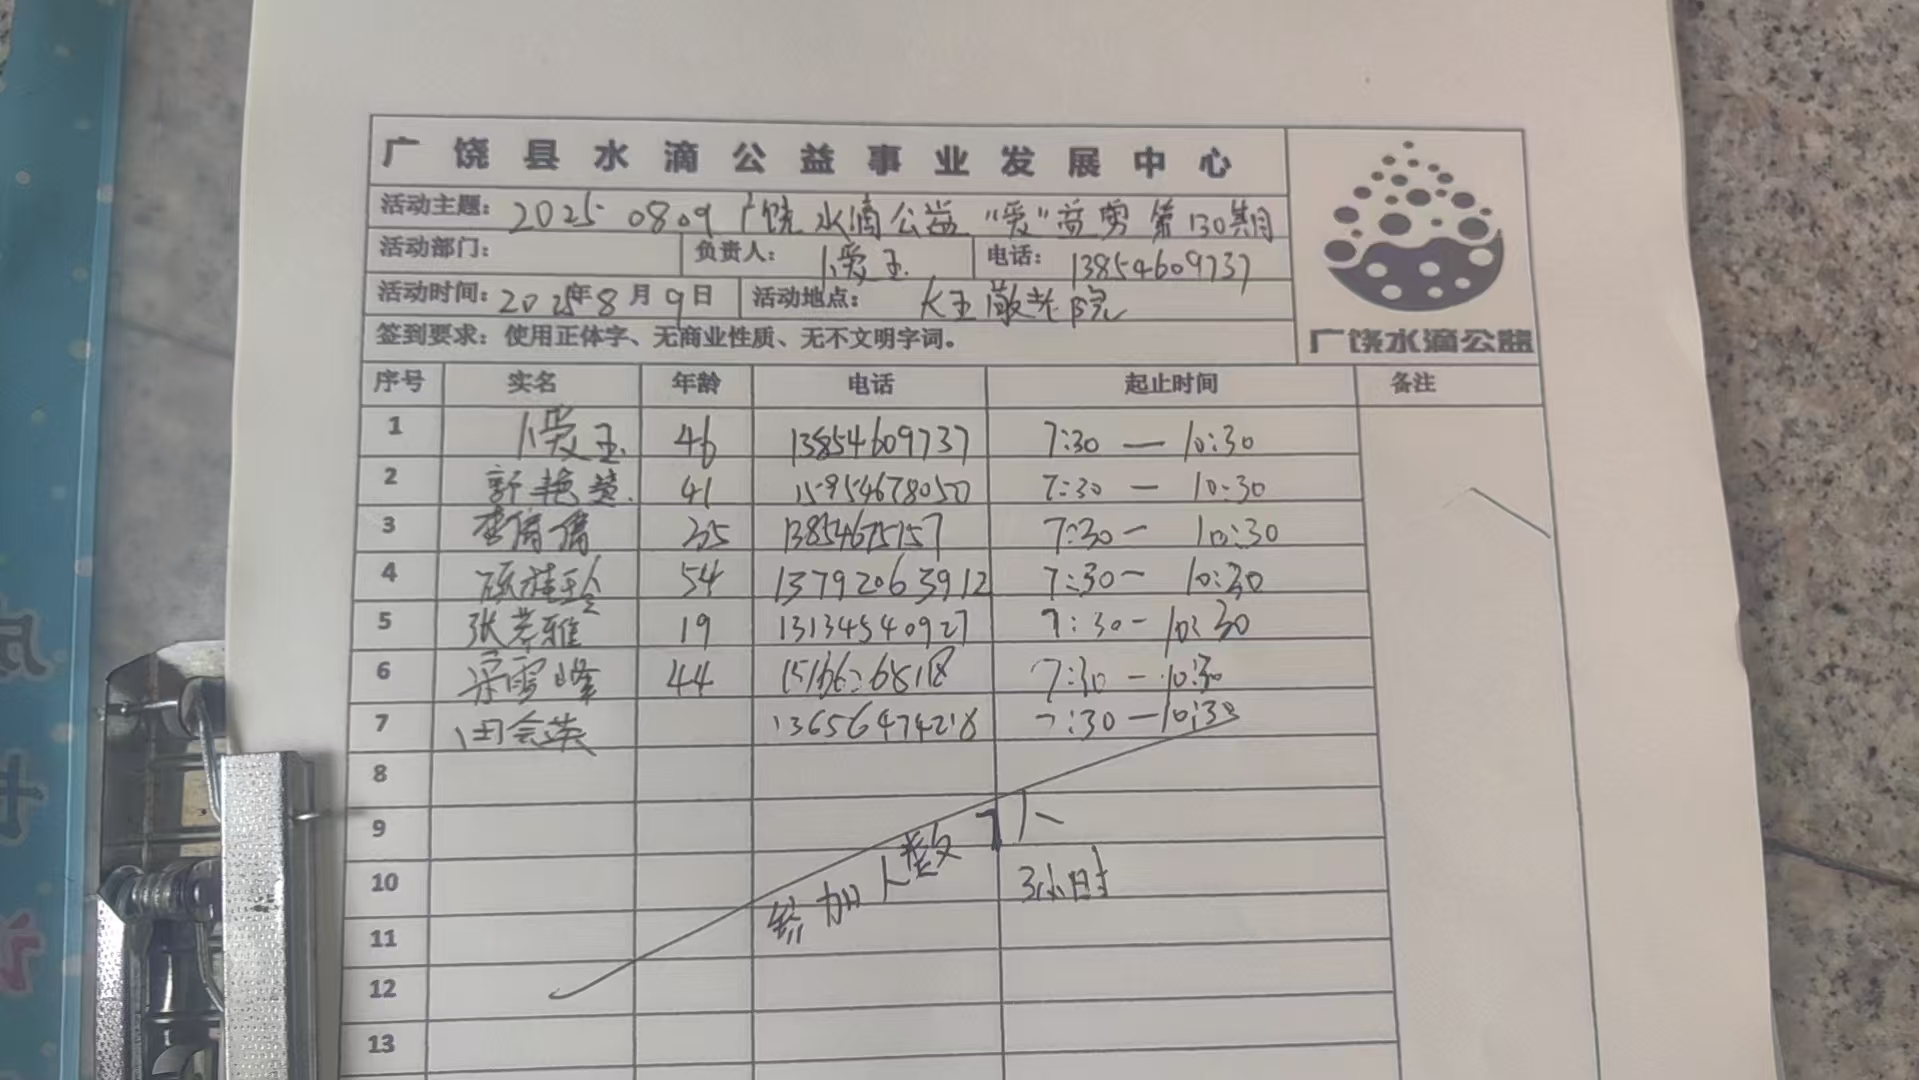 广饶县水滴公益事业发展中心
活动主题: 2025 0809 广饶水滴公益"爱"益剪第130期
活动部门: 负责人: 爱玉 电话: 13854609737
活动时间: 2025年8月9日 活动地点: 大王敬老院
签到要求: 使用正体字、无商业性质、无不文明字词。
广饶水滴公益
序号 实名 年龄 电话 起止时间 备注
1 爱玉 46 13854609737 7:30 — 10:30
2 艳 41 15954678050 7:30 — 10:30
3 李倩倩 35 13854675757 7:30 — 10:30
4 54 13792063912 7:30 — 10:30
5 张若雅 19 13134540927 7:30 — 10:30
6 雪峰 44 7:30 — 10:30
7 田会英 13656474218 7:30 — 10:30
8
9
参加人数 7人
10 3小时
11
12
13